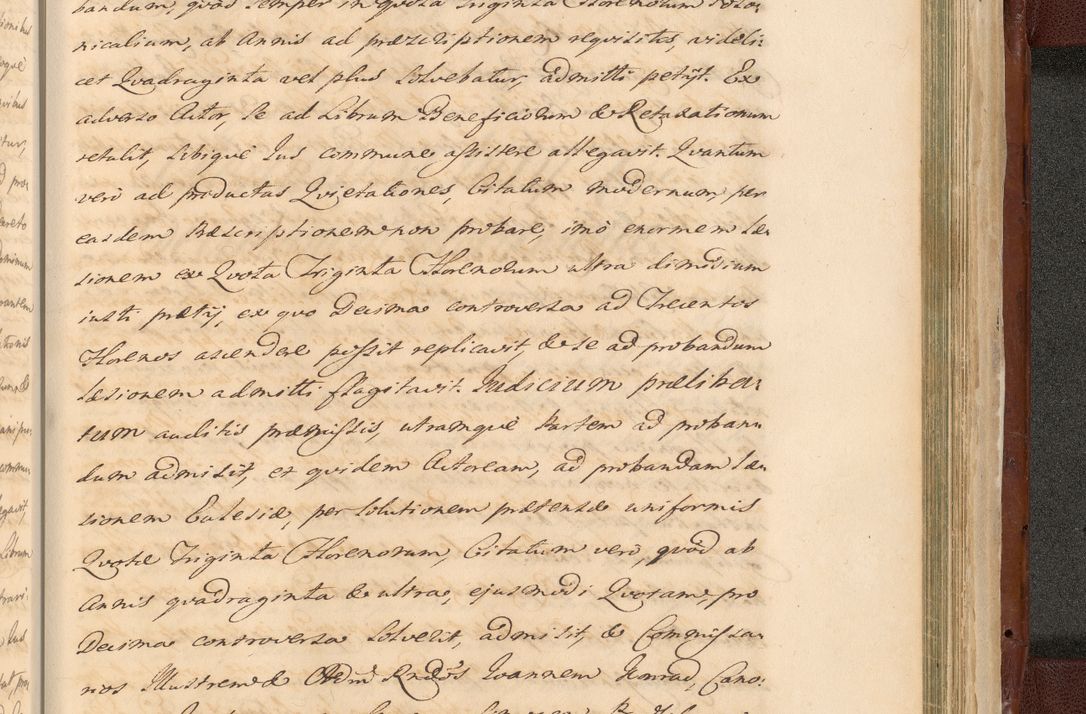 bandum, quod semper in quota Triginta Florenorum Polo-
nicalium, ab Annis ad præscriptionem requisitis, videli:
cet Quadraginta vel plus solvebatur, admitti petijt. Ex
adverso Actor, se ad Librum Beneficiorum & Retaxationum
retulit, sibique Ius commune assistere allegavit. Quantum
verò ad productas Quietationes, Citatum modernum, per
easdem Præscriptionem non probare, imò enormem læ-
sionem ex Quota Triginta Florenorum ultra dimidium
iusti pretij, ex quo Decima controversa ad Trecentos
Florenos ascendere possit replicavit, & se ad probandum
læsionem admitti flagitavit. Iudicium præliba-
tum auditis præmissis, utramque Partem ad proban-
dum admisit, et quidem Actoream, ad probandam læ-
sionem Eclesiæ, per solutionem prætensæ uniformis
Quotæ Triginta Florenorum, Citatum verò, quòd ab
Annis quadraginta & ultra, ejusmodi Quotam, pro
Decima controversa solverit, admisit, & Commissa-
rios Illustrem & Adm Rndos Ioannem Konrad, Cano: